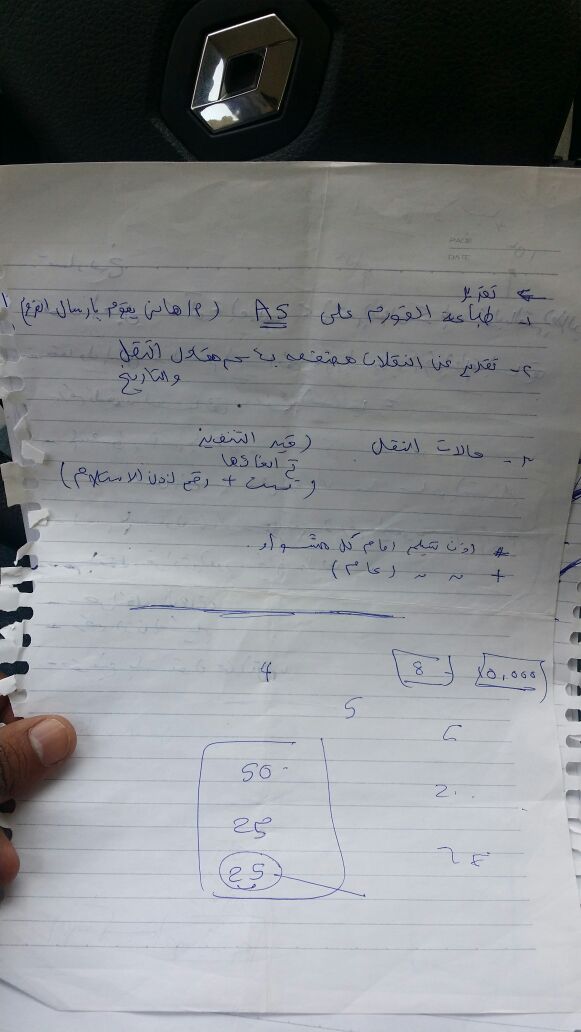 PAGE
DATE
← تقرير
١- طباعة الفورم على A5 (م/هاني يقوم بإرسال الفرم)
٢- تقرير عن النقلات مقسمه باسم مقاول النقل
والتاريخ
٣- حالات النقل (قيد التنفيذ
تم الغاؤها
تمت + رقم اذن الاستلام)
* اذن تسليم امام كل مشوار
+ ~ ~ (عام)
4 8 10,000
5
6
50
25
25